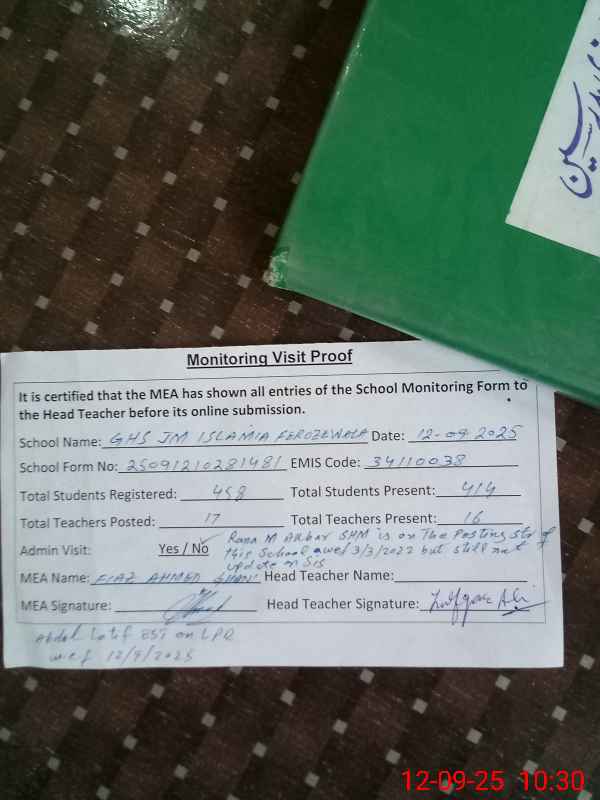 Monitoring Visit Proof
It is certified that the MEA has shown all entries of the School Monitoring Form to
the Head Teacher before its online submission.
School Name: GHS JM ISLAMIA FEROZEWALA Date: 12-09-2025
School Form No: 25091210281481 EMIS Code: 34110038
Total Students Registered: 458 Total Students Present: 414
Total Teachers Posted: 17 Total Teachers Present: 16
Rana M Akbar SHM is on The Posting str of
Admin Visit: Yes / No this School w.e.f 3/3/2022 but still not
update on Sis
MEA Name: FIAZ AHMED GHANI Head Teacher Name:
MEA Signature: Head Teacher Signature: Zulfqar Ali
Abdul Latif EST on LPR
w.e.f 12/9/2025
12-09-25 10:30